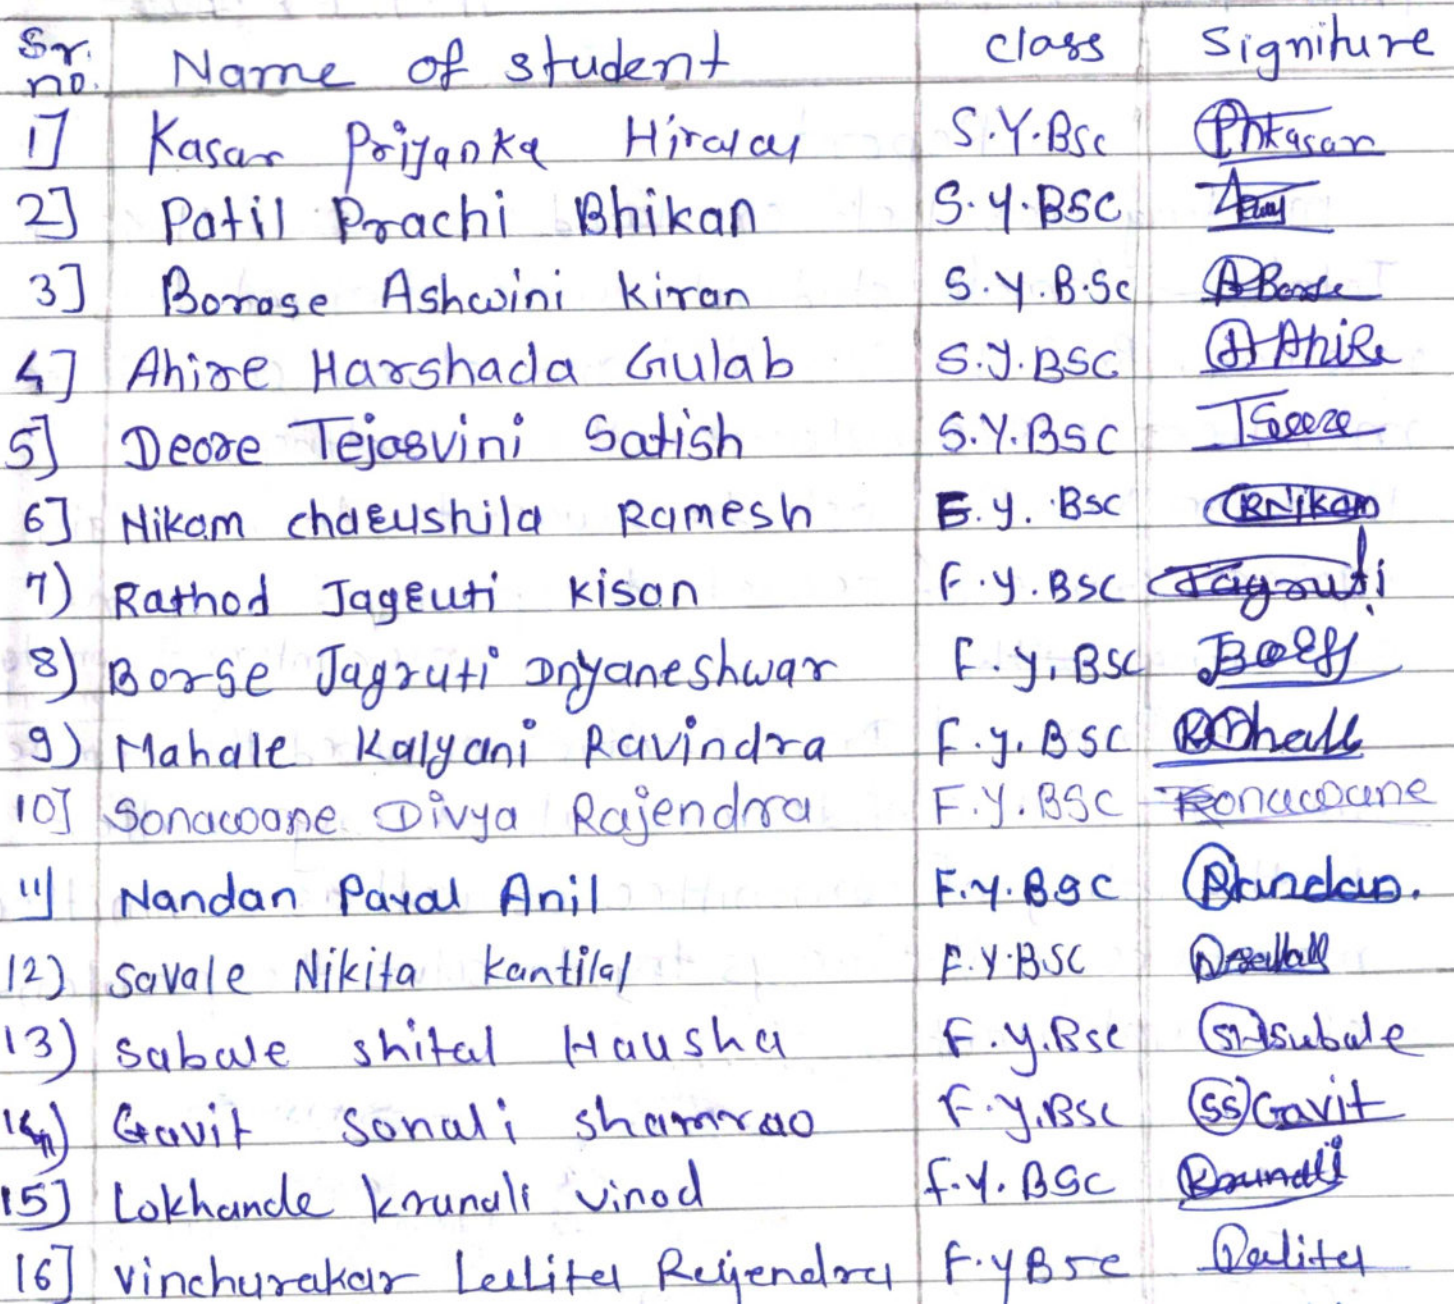 Sr. no. Name of student class Signiture
1] Kasar Priyanka Hiralal S.Y.Bsc PHKasar
2] Patil Prachi Bhikan S.Y.BSC
3] Borase Ashwini kiran S.Y.B.Sc ABorse
4] Ahire Harshada Gulab S.Y.BSC HAhire
5] Deore Tejasvini Satish S.Y.BSC
6] Nikam chaRushila Ramesh F.y. BSC CRNikam
7) Rathod JagRuti kison F.y.BSC Jagruti
8) Borse Jagruti Dnyaneshwar F.y.BSC
9) Mahale Kalyani Ravindra F.y.BSC
10] Sonawane Divya Rajendra F.Y.BSC
11] Nandan Payal Anil F.y.BSC
12) Savale Nikita kantilal F.Y.BSC
13) Sabale shital Hausha F.y.Bsc SHSabale
14) Gavit Sonali shamrao F.y.Bsc SSGavit
15] Lokhande krunali vinod F.Y.BSC Krunali
16] vinchurakar Lalita Rajendra F.yBsc Lalita